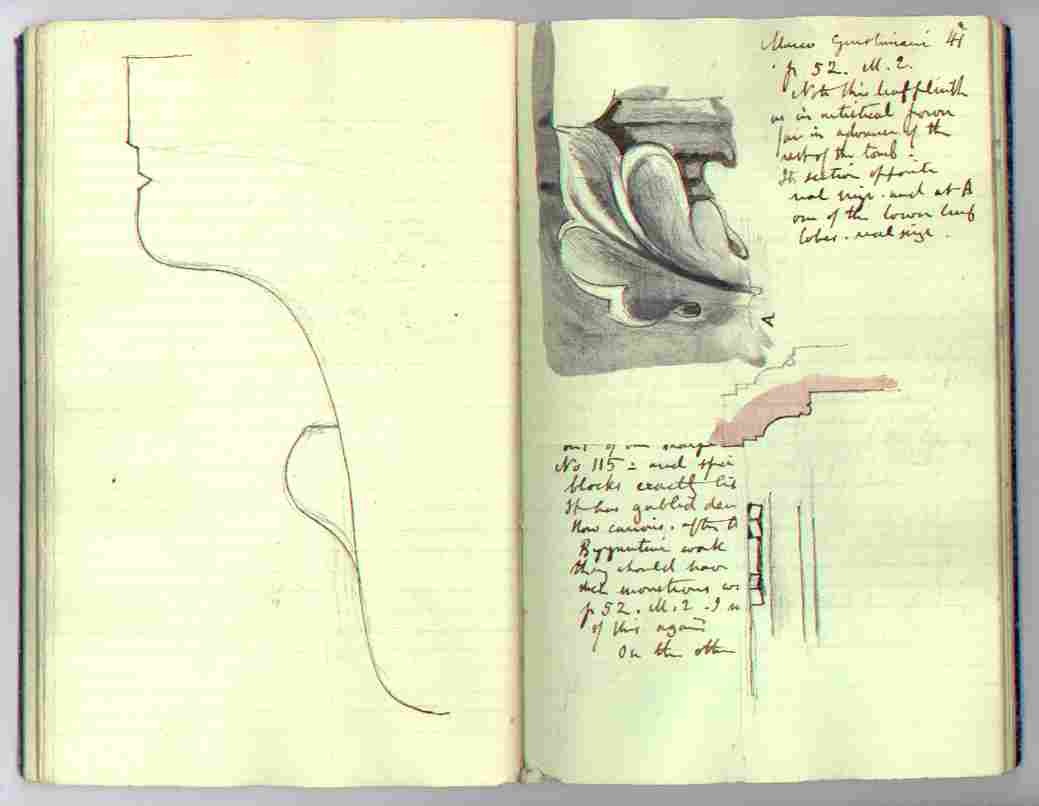 Marco Giustiniani 41
p 52. M. 2.
Note this leaf plinth
as in artistical power
far in advance of the
rest of the tomb.
Its section opposite
real size. and at A
one of the lower leaf
lobes. real size.
A
out of our
No 115 = and
blocks exactly
It has gabled
How curious. after
Byzantine work
they should have
such monstrous
p 52. M. 2. I
of this again
On the other